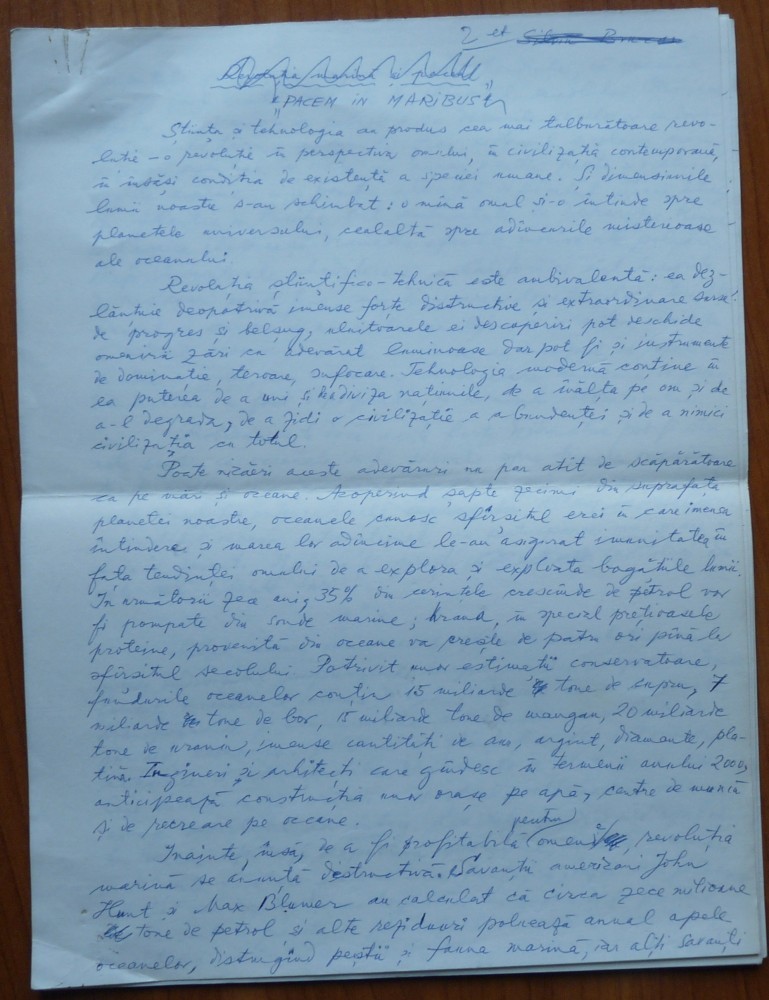 2 et
Revoluția marină și pacea
"PACEM in MARIBUS"
Știința și tehnologia au produs cea mai tulburătoare revo-
luție – o revoluție în perspectiva omului, în civilizația contemporană,
în însăși condiția de existență a speciei umane. Și dimensiunile
lumii noastre s-au schimbat: o mînă omul și-o întinde spre
planetele universului, cealaltă spre adîncurile misterioase
ale oceanului.
Revoluția științifico-tehnică este ambivalentă: ea dez-
lănțuie deopotrivă imense forțe distructive și extraordinare surse
de progres și belșug, uluitoarele ei descoperiri pot deschide
omenirii zări cu adevărat luminoase dar pot fi și instrument
de dominație, teroare, sufocare. Tehnologia modernă conține în
ea puterea de a uni și a diviza națiunile, de a înălța pe om și de
a-l degrada, de a zidi o civilizație a abundenței și de a nimici
civilizația ca totul.
Poate nicăieri aceste adevăruri nu par atît de scăpărătoare
ca pe mări și oceane. Acoperind șapte zecimi din suprafața
planetei noastre, oceanele cunosc sfîrșitul erei în care imensa
întindere și marea lor adîncime le-au asigurat imunitatea în
fața tendinței omului de a explora și exploata bogățiile lumii.
În următorii zece ani, 35% din cerințele crescînde de petrol vor
fi pompate din sonde marine; hrana, în special prețioasele
proteine, provenită din oceane va crește de patru ori pînă la
sfîrșitul secolului. Potrivit unor estimații conservatoare,
fundurile oceanelor conțin 15 miliarde tone de cupru, 7
miliarde tone de bor, 15 miliarde tone de mangan, 20 miliarde
tone de uraniu, imense cantități de aur, argint, diamante, pla-
tină. Ingineri și arhitecți care gîndesc în termenii anului 2000,
anticipează construcția unor orașe pe apă, centre de muncă
și de recreare pe oceane.
Înainte, însă, de a fi profitabilă pentru omenire, revoluția
marină se anunță distructivă. Savanții americani John
Hunt și Max Blumer au calculat că circa zece milioane
tone de petrol și alte reziduuri poluează anual apele
oceanelor, distrugînd peștii și fauna marină, iar alți savanți